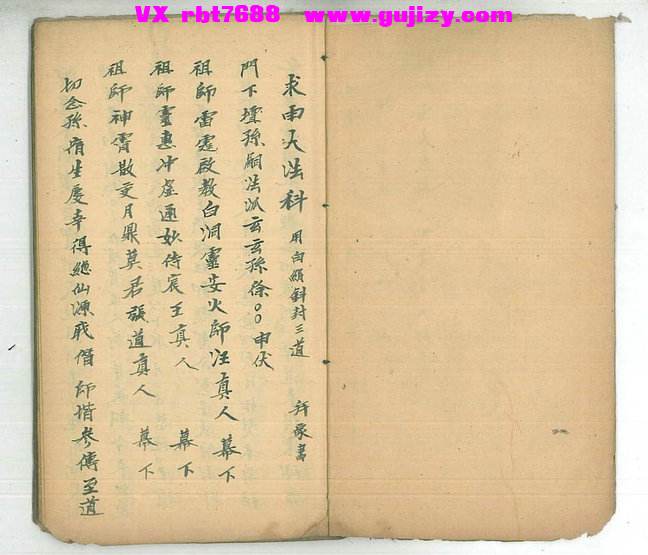 VX rbt7688 www.gujizy.com
求雨大法科 用白頭斜封三道
門下壇孫嗣法派玄玄孫徐○○申伏
祖師雷霆啟教白洞靈安火師汪真人 幕下
祖師靈惠冲虛通妙侍宸王真人 幕下
祖師神霄散吏月鼎莫君張道真人 幕下
切念孫 生慶幸得繼仙源戒僭 師堦參傳至道